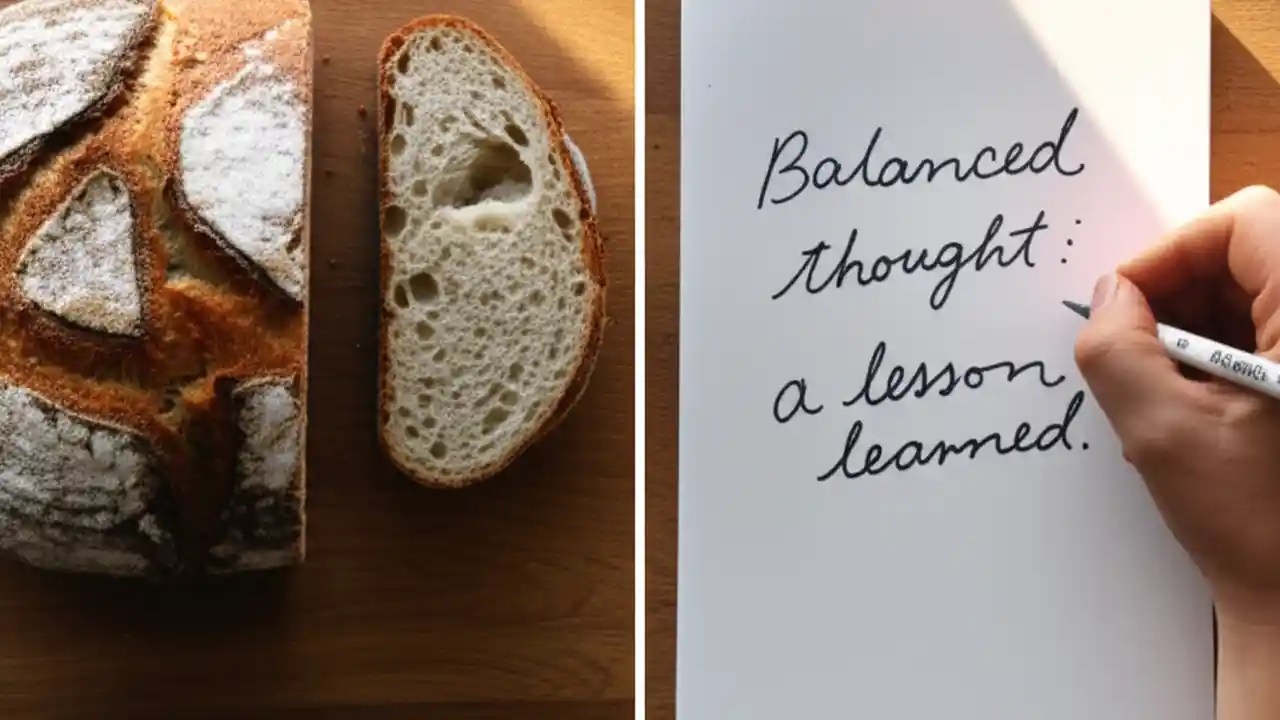 Balanced
thought:
a lesson
learned.